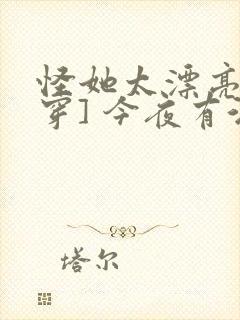 怪她太漂亮
穿] 今夜有
塔尔